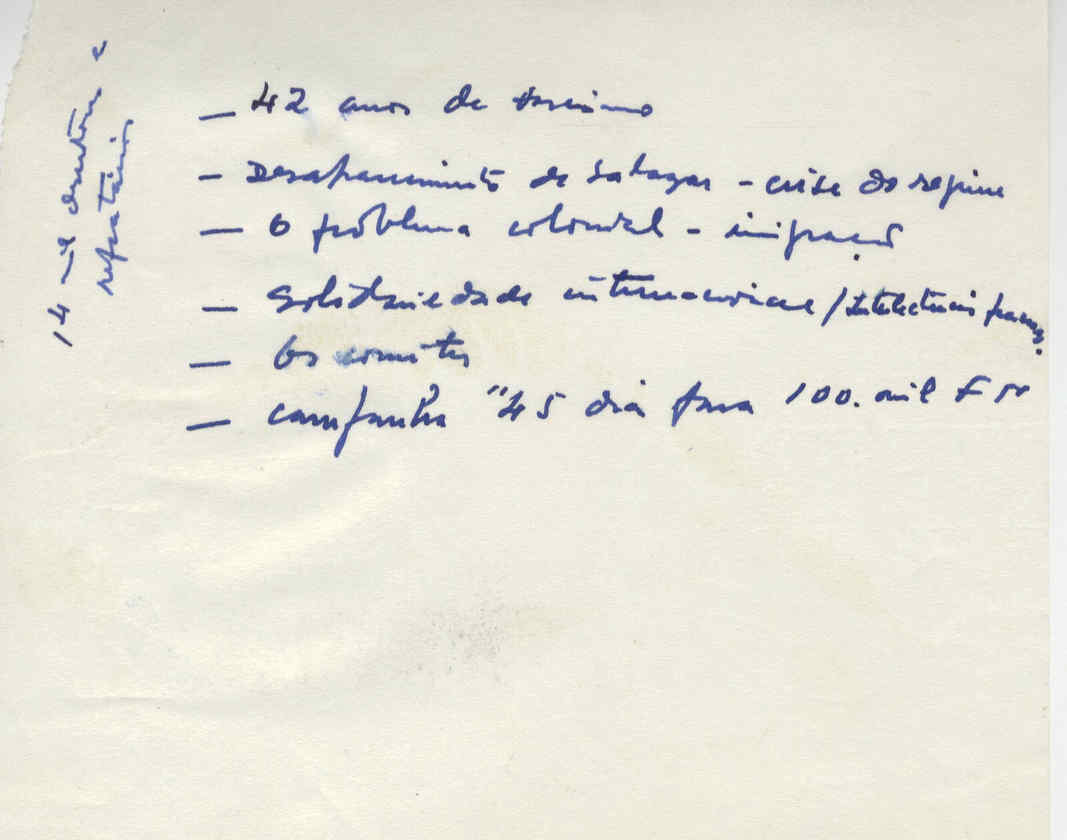 — 42 anos de fascismo
— Desaparecimento de Salazar - crise do regime
— O problema colonial - imigração
— Solidariedade internacional / Intelectuais
— Os comités
— campanha "45 dias para 100.mil F
14 mil desertores e
refractários